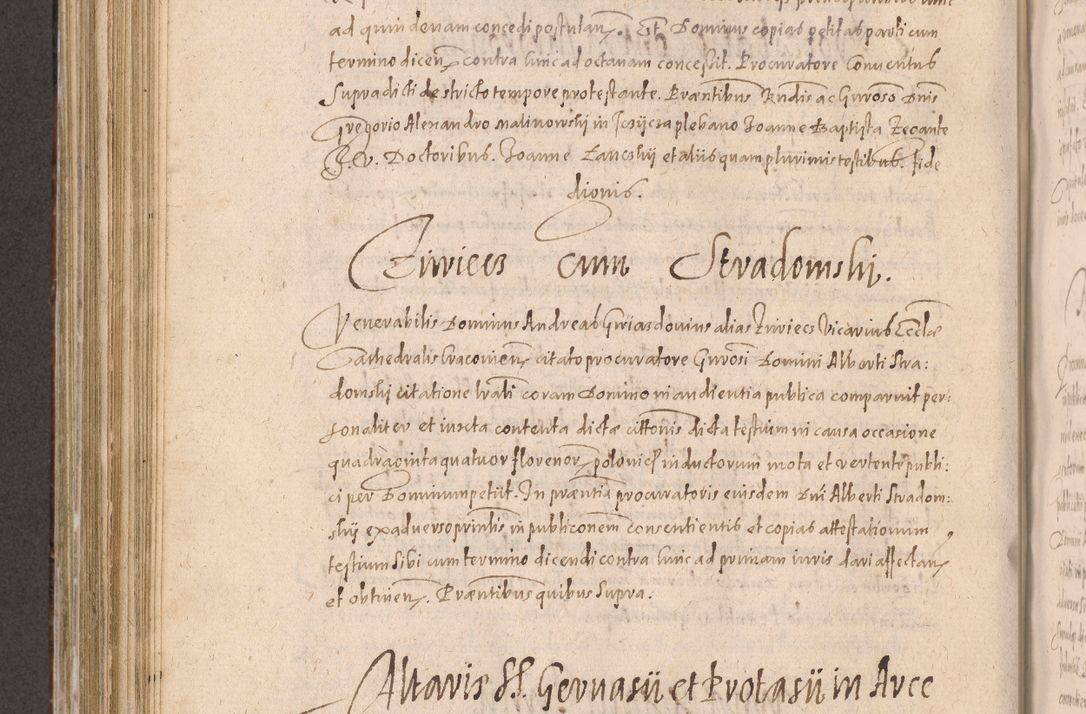 ad quindenam concedi postulan. Et Dominus copias petitas parti cum
termino dicen. contra hinc ad octavam concessit. Procuratore Conventus
Supradicti de stricto tempore protestante. Præntibus Rndis ac Gnroso Dnis
Gregorio Alexandro Malinowskij in plebano Joanne Baptista Zecante
J. V. Doctoribus. Joanne Lancskij et aliis quam plurimis testibus. fide
dignis.
Ziwiecz cum Stradomskij.
Venerabilis Dominus Andreas alias Ziwiecz Vicarius Ecclæ
Cathedralis Cracovien. citato procuratore Gnrosi Domini Alberti Stra:
domskij citatione lrali coram Domino in audientia publica comparuit per:
sonaliter et iuxta contenta dictæ cittonis dicta testium in causa occasione
quadraginta quatuor florenor. polonicl. inductorum mota et vertente publi:
ci per Dominum petiit. In præntia procuratoris eiusdem Dni Alberti Stradom:
skij ex adverso prinlis in publiconem consentientis et copias attestationum
testium sibi cum termino dicendi contra hinc ad primam iuris dari affectan.
et obtinen. Præntibus quibus supra.
Altaris SS. Gervasii et Protasii in Arce